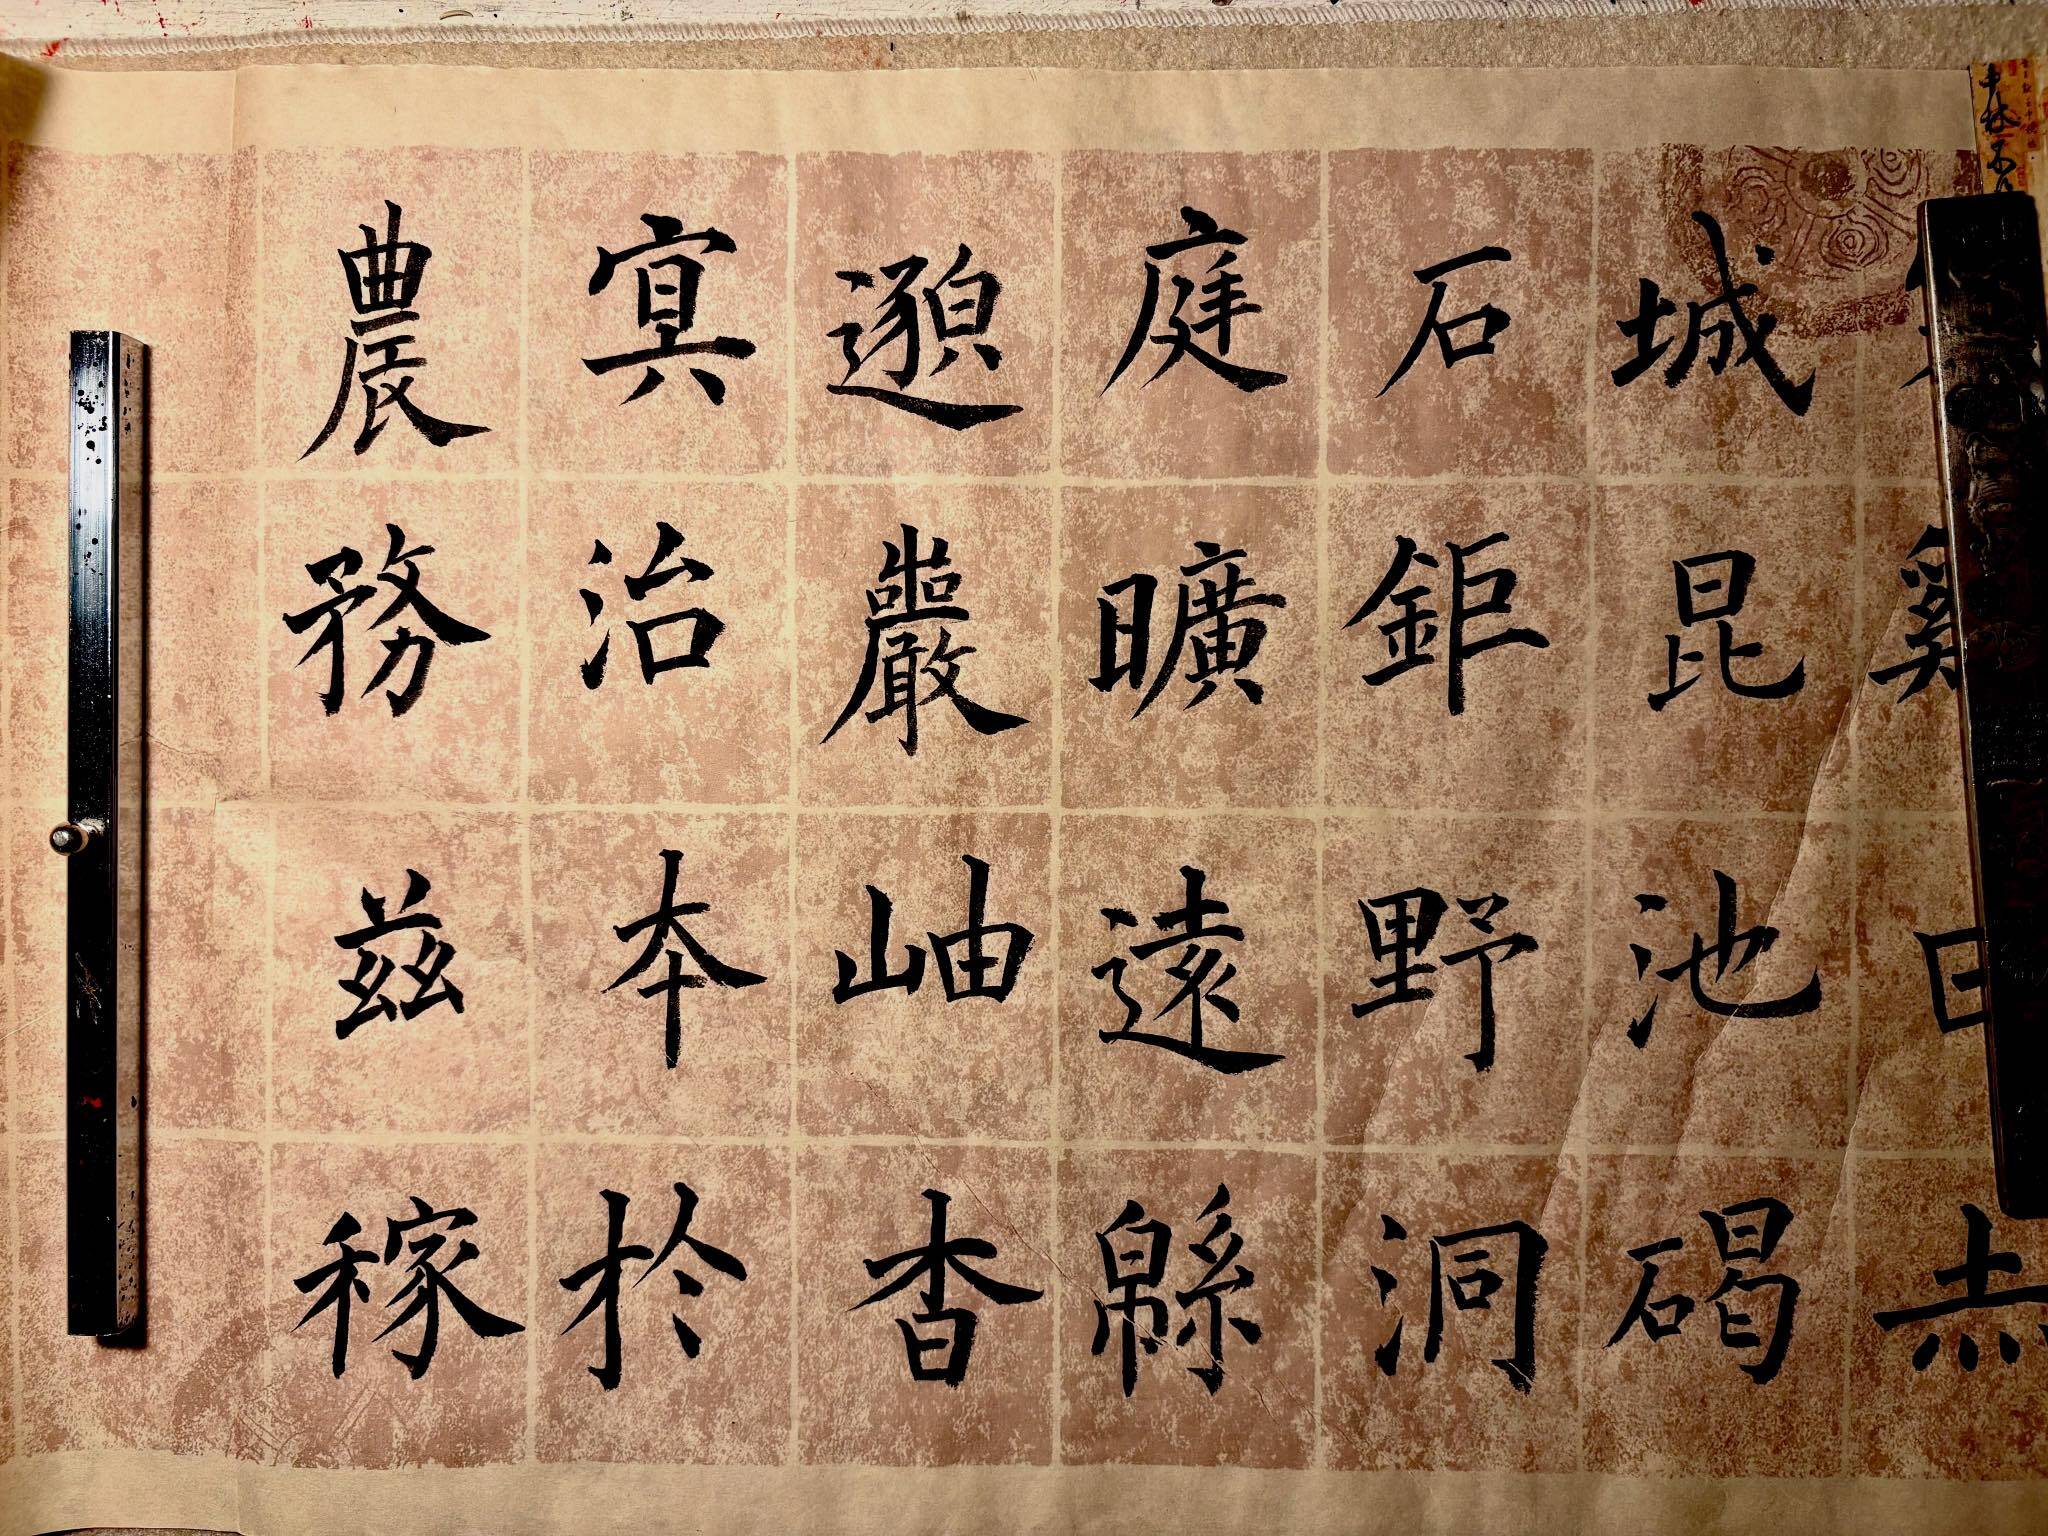 雞田赤
城昆池碣
石鉅野洞
庭曠遠緜
邈巖岫杳
冥治本於
農務茲稼